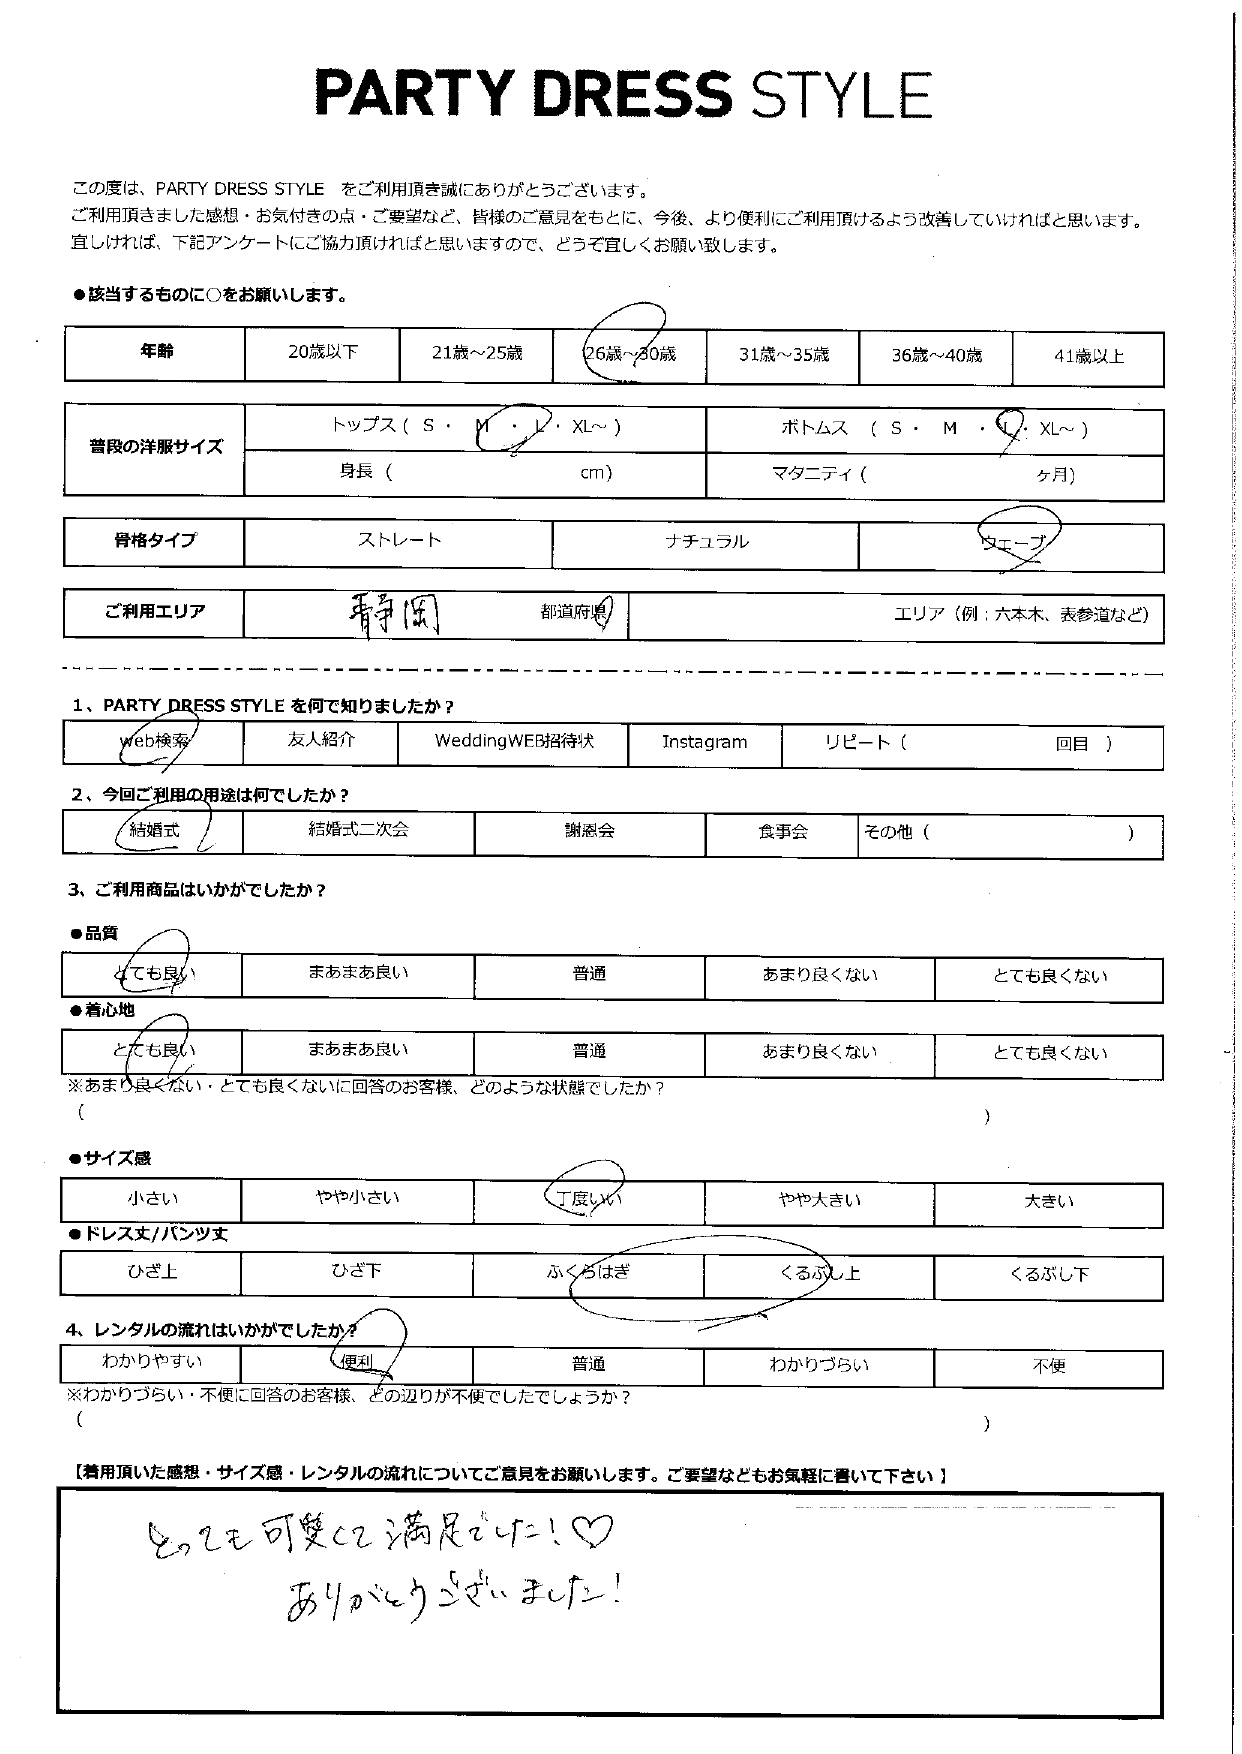 PARTY DRESS STYLE
この度は、PARTY DRESS STYLE をご利用頂き誠にありがとうございます。
ご利用頂きました感想・お気付きの点・ご要望など、皆様のご意見をもとに、今後、より便利にご利用頂けるよう改善していければと思います。
宜しければ、下記アンケートにご協力頂ければと思いますので、どうぞ宜しくお願い致します。
●該当するものに○をお願いします。
年齢 20歳以下 21歳～25歳 26歳～30歳 31歳～35歳 36歳～40歳 41歳以上
普段の洋服サイズ トップス ( S ・ M ・ L ・ XL～ ) ボトムス ( S ・ M ・ L ・ XL～ )
身長 ( cm) マタニティ ( ヶ月)
骨格タイプ ストレート ナチュラル ウェーブ
ご利用エリア 静岡 都道府県 エリア（例；六本木、表参道など）
1、PARTY DRESS STYLE を何で知りましたか？
web検索 友人紹介 WeddingWEB招待状 Instagram リピート ( 回目 )
2、今回ご利用の用途は何でしたか？
結婚式 結婚式二次会 謝恩会 食事会 その他 ( )
3、ご利用商品はいかがでしたか？
●品質
とても良い まあまあ良い 普通 あまり良くない とても良くない
●着心地
とても良い まあまあ良い 普通 あまり良くない とても良くない
※あまり良くない・とても良くないに回答のお客様、どのような状態でしたか？
( )
●サイズ感
小さい やや小さい 丁度いい やや大きい 大きい
●ドレス丈/パンツ丈
ひざ上 ひざ下 ふくらはぎ くるぶし上 くるぶし下
4、レンタルの流れはいかがでしたか？
わかりやすい 便利 普通 わかりづらい 不便
※わかりづらい・不便に回答のお客様、どの辺りが不便でしたでしょうか？
( )
【着用頂いた感想・サイズ感・レンタルの流れについてご意見をお願いします。ご要望などもお気軽に書いて下さい】
とっても可愛くて満足でした！♡
ありがとうございました！